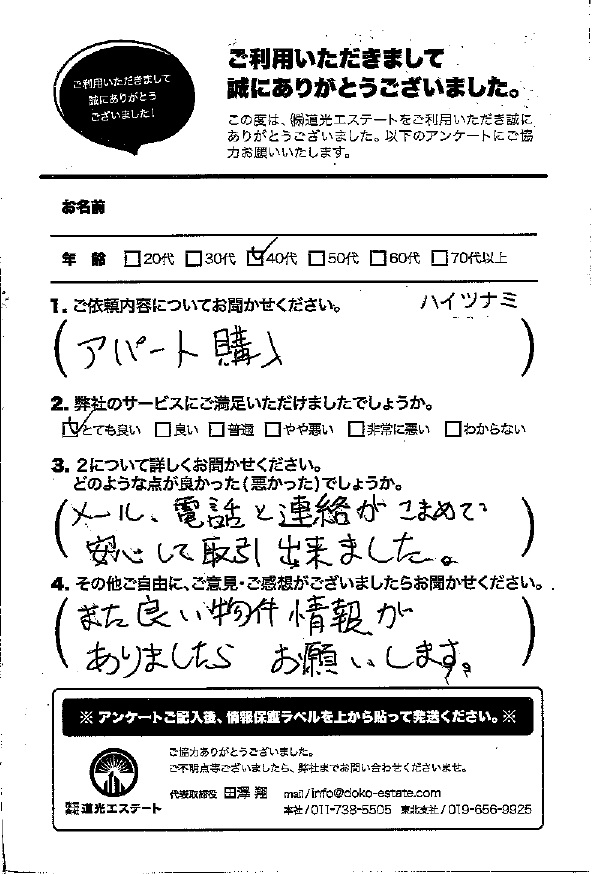 ご利用いただきまして
誠にありがとう
ございました!
ご利用いただきまして
誠にありがとうございました。
この度は、㈱道光エステートをご利用いただき誠に
ありがとうございました。以下のアンケートにご協
力お願いいたします。
お名前
年 齢 □20代 □30代 ☑40代 □50代 □60代 □70代以上
1. ご依頼内容についてお聞かせください。 ハイツナミ
(アパート購入)
2. 弊社のサービスにご満足いただけましたでしょうか。
☑とても良い □良い □普通 □やや悪い □非常に悪い □わからない
3. 2について詳しくお聞かせください。
どのような点が良かった(悪かった)でしょうか。
(メール、電話と連絡がこまめで
安心して取引出来ました。)
4. その他ご自由に、ご意見・ご感想がございましたらお聞かせください。
(また良い物件情報が
ありましたら お願いします。)
※ アンケートご記入後、情報保護ラベルを上から貼って発送ください。※
ご協力ありがとうございました。
ご不明点等ございましたら、弊社までお問い合わせくださいませ。
代表取締役 田澤 翔 mail/info@doko-estate.com
株式会社 道光エステート 本社/011-738-5505 東北支社/019-656-9925